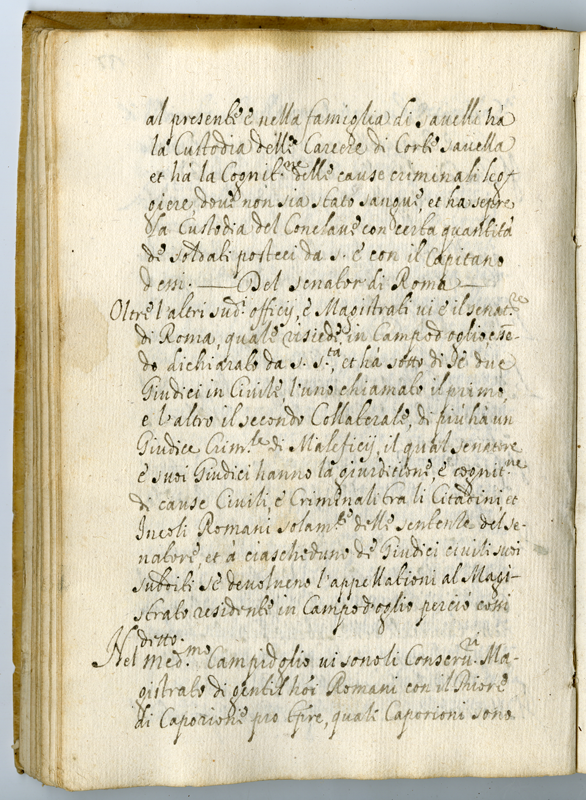 al presente è nella famiglia di Savelli hà
la Custodia delle Carcere di Corte Savella
et hà la Cognit.ne delle cause criminali leg-
giere dove non sia stato sangue et ha sepre
la Custodia del Conclave con certa quantità
de soldati posteci da S. e con il Capitano
d essi. — Del senator di Roma —
Oltre l'altri sud.i officij, e Magistrati vi è il senat.re
di Roma, quale risiede in Campod'oglio essē-
do dichiarato da S. S.ta, et ha sotto di se due
Giudici in Civile l'uno chiamato il primo,
e l'altro il secondo Collaterale, di più hà un
Giudice Crim.le di Maleficij, il qual senatore
e suoi Giudici hanno la giurdicione, e cognit.ne
di cause Civili, e Criminali tra li Cittadini, et
Incoli Romani solam.te delle sentenze del se-
natore, et à ciaschedune de Giudici civili suoi
subbiti se devolveno l'appellationi al Magi-
strato residente in Campod'oglio perciò cosi
detto.
Nel med.mo Campidoglio vi sono li Conserv.ri Ma-
gistrato di gentil hōi Romani con il Priore
di Caporione pro tpre, quale Caporioni sono